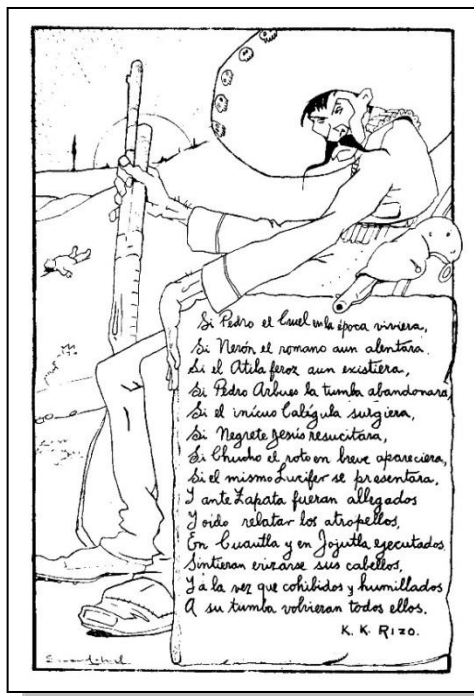 Si Pedro el Cruel en la época viviera,
Si Nerón el romano aun alentara.
Si el Atila feroz aun existiera,
Si Pedro Arbues la tumba abandonara,
Si el inícuo Calígula surgiera,
Si Negrete Jesús resucitara,
Si Chucho el roto en breve apareciera,
Si el mismo Lucifer se presentara,
Y ante Zapata fueran allegados
Y oido relatar los atropellos,
En Cuautla y en Jojutla ejecutados
Sintieran erizarse sus cabellos,
Y á la vez que cohibidos y humillados
A su tumba volvieran todos ellos.
K. K. RIZO.